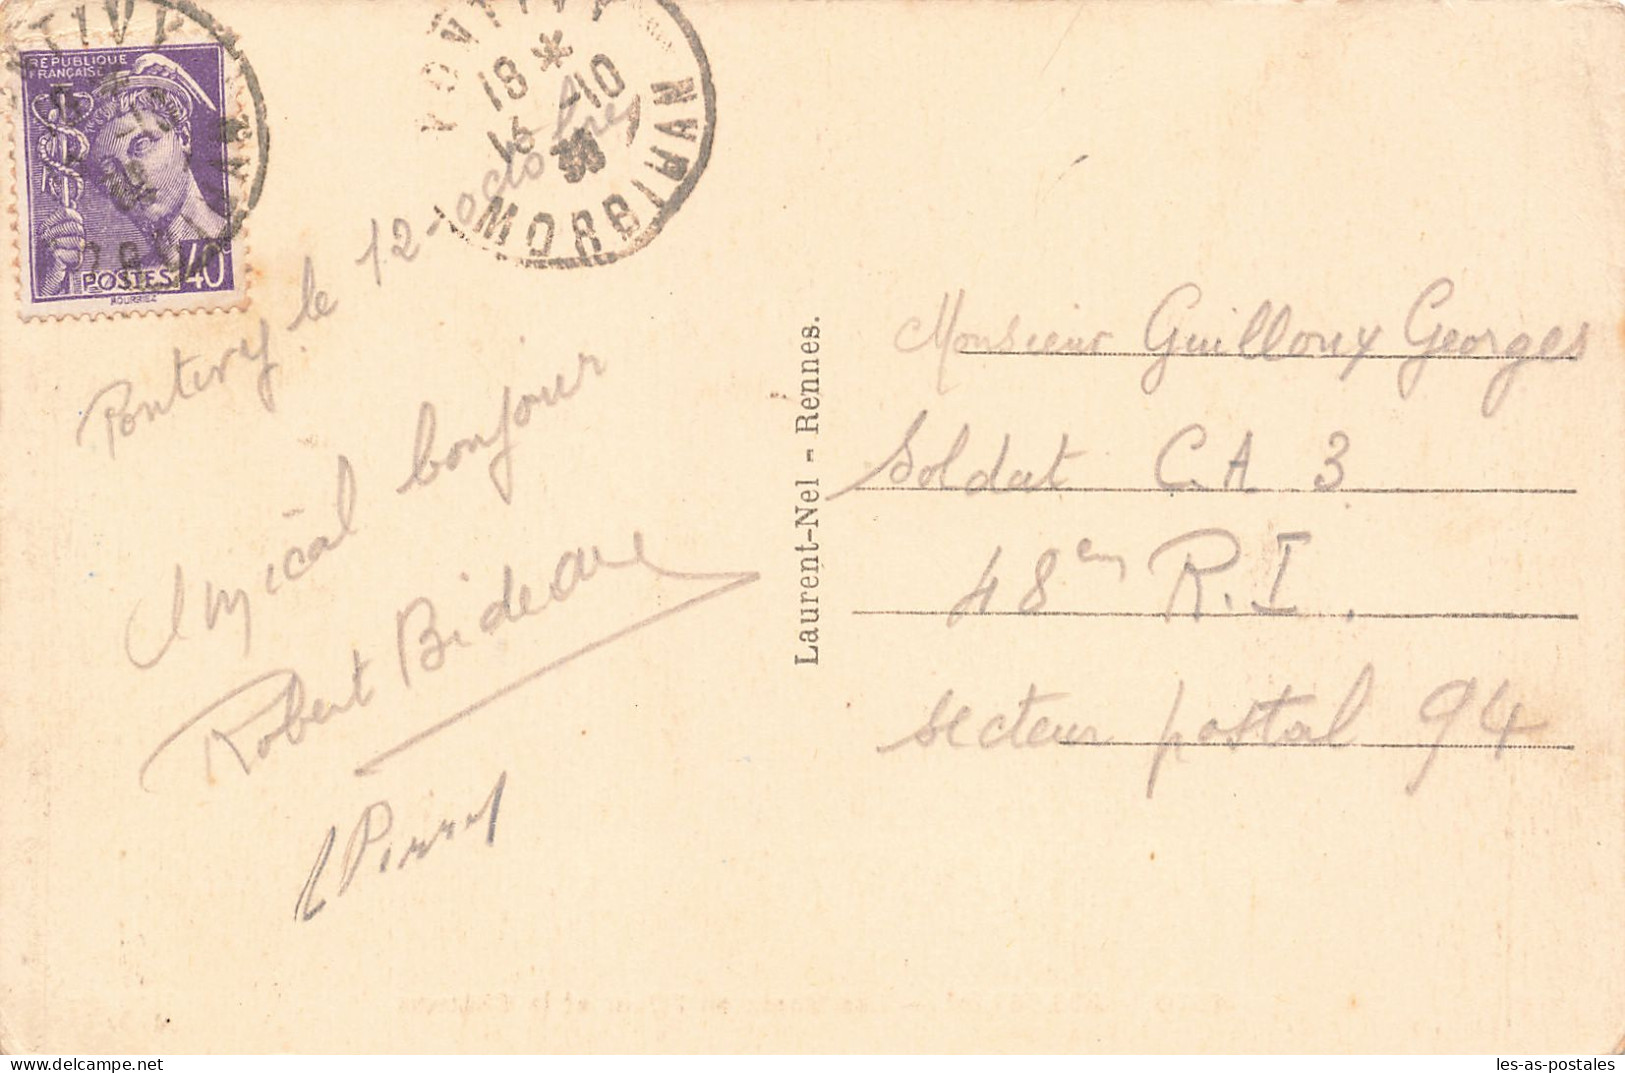 RÉPUBLIQUE
FRANÇAISE
POSTES 40
PONTIVY
18 *
16 -10
MORBIHAN
Pontivy le 12 - octobre
Amical bonjour
Robert Bideau
Laurent-Nel - Rennes.
Monsieur Guilloux Georges
Soldat C.A 3
48em R.I.
secteur postal 94
les-as-postales